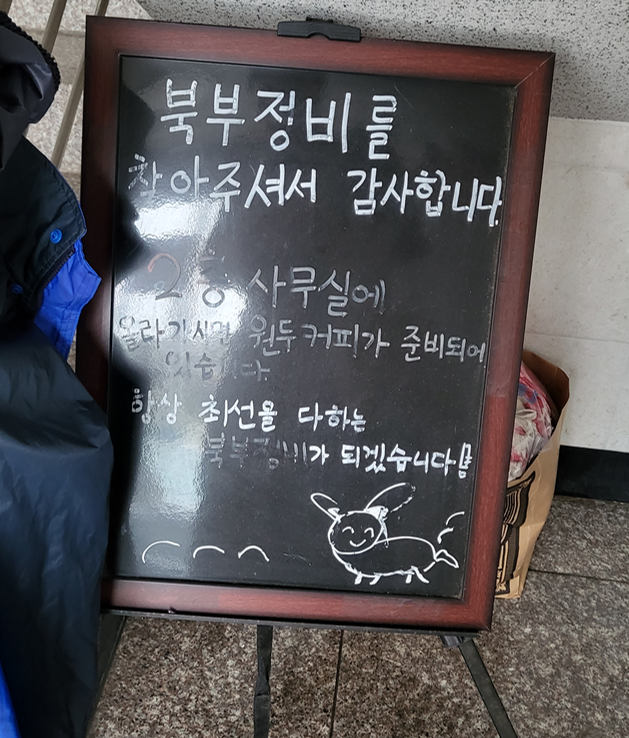 북부정비를
찾아주셔서 감사합니다.
2층 사무실에
올라가시면 원두커피가 준비되어
있습니다.
항상 최선을 다하는
북부정비가 되겠습니다!!